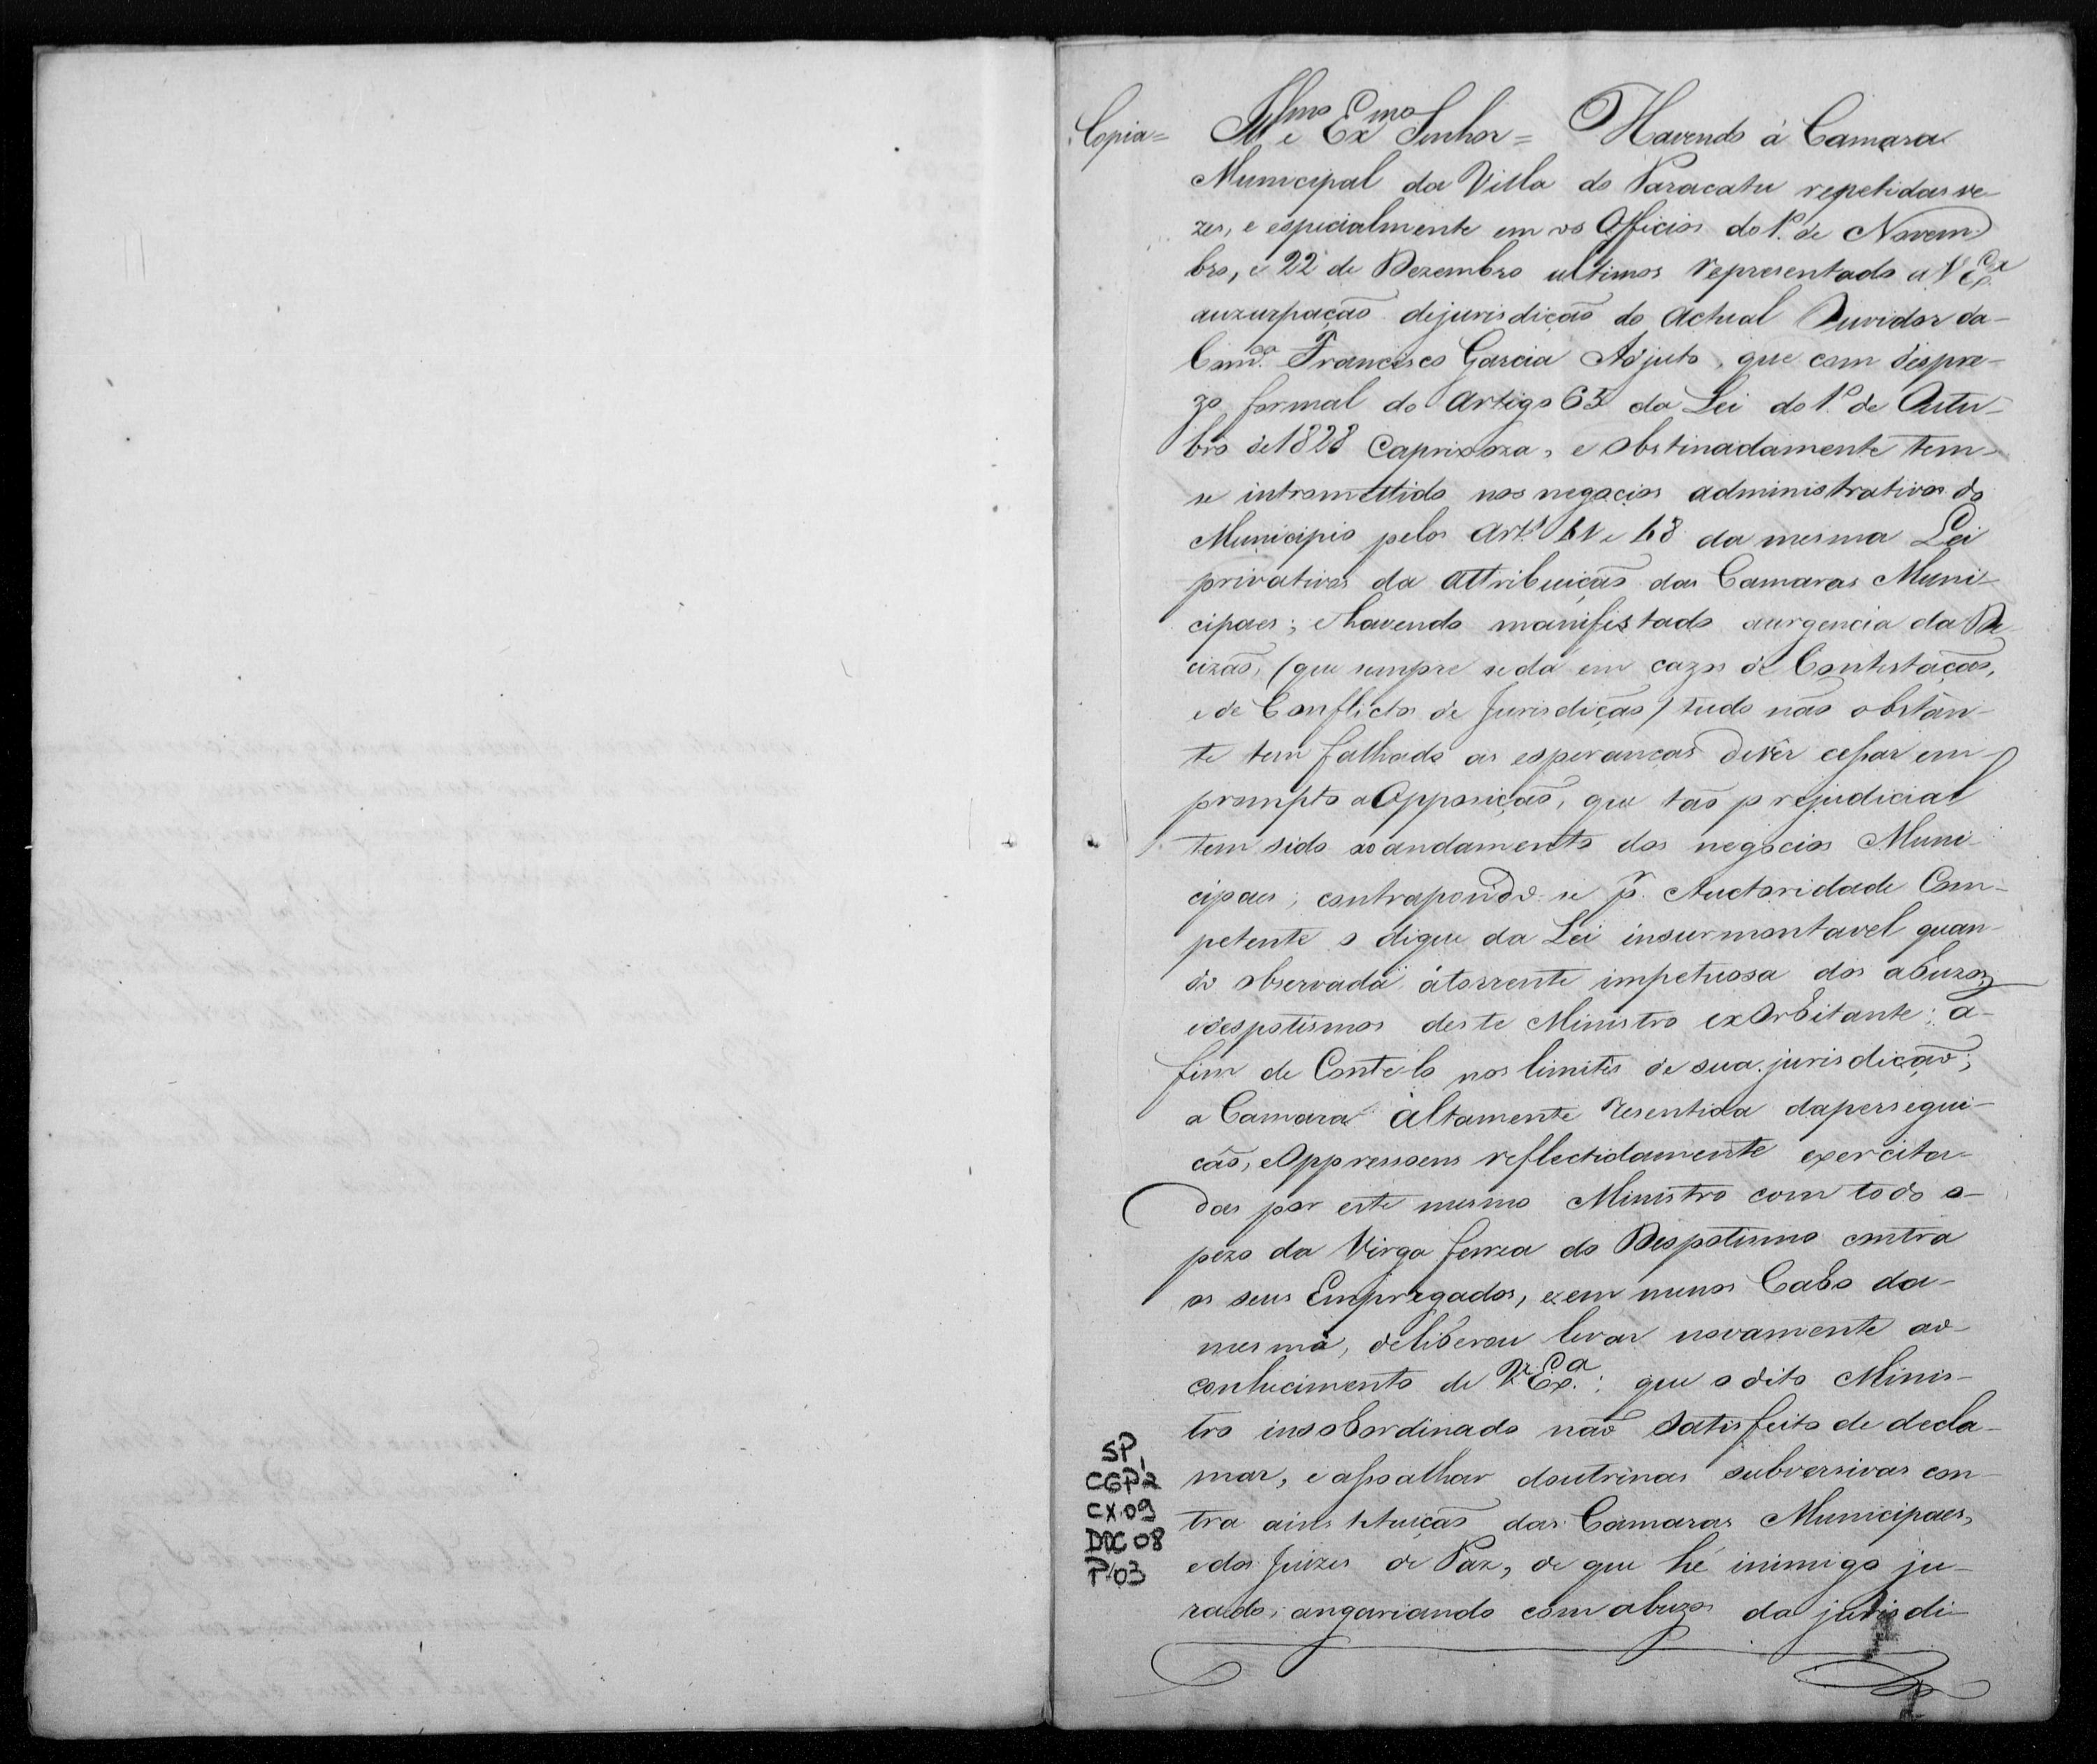 Copia= Illmo e Exmo Senhor = Havendo á Camara
Municipal da Villa do Paracatu repetidas ve-
zes, e especialmente em os Officios do 1º de Novem
bro, e 22 de Dezembro ultimos representado a V Exca
auzurpação dejurisdicão do Actual Ouvidor da-
Comca Francisco Garcia Adjuto, que com despre-
zo formal do Artigo 65 da Lei do 1º de Outu-
bro de 1828 Caprixoza, e obstinadamente tem-
se intromettido nos negocios administrativos do
Municipio pelos Arts da mesma Lei
privativos da Attribuição das Camaras Muni-
cipaes; ehavendo manifestado aurgencia da De
cizão, (que sempre seda em cazos de Contestação,
e de Conflictos de Jurisdição) tudo não obstan-
te tem falhado as esperanças devêr cessar em-
prompto a Opposição, que tão prejudicial
tem sido ao andamento dos negocios Muni-
cipaes; contrapondo-se pr Auctoridade Com-
petente o dique da Lei insurmontavel quan-
do observada átorrente impetuosa dos abuzos,
edespotismos deste Ministro exOrbitante: a-
fim de Conte-lo nos limites de sua jurisdicão;
a Camara altamente resentida dapersegui-
cão, eOppressoens reflectidamente exercita-
das por este mesmo Ministro com todo o-
pezo da Virga ferrea do Despotismo contra
os seus Empregados, e em menos Cabo da-
mesma, deliberou levar novamente ao-
conhecimento de V. Exca: que o dito Minis-
tro insobordinado não satisfeito de decla-
mar, e assoalhar doutrinas subversivas con-
tra ainstituicão das Camaras Municipaes,
e dos Juizes de Paz, de que hé inimigo ju-
rado, angariando com abuzos da jurisdi-
SP1
CGP2
CX.09
DOC 08
P/03